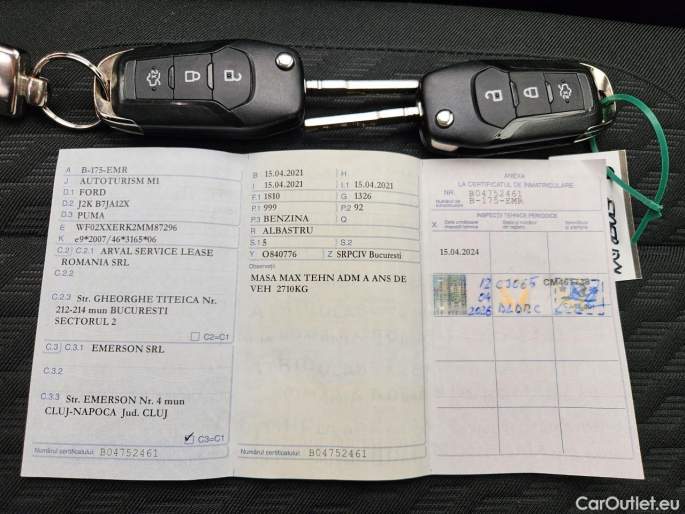 A B-175-EMR
J AUTOTURISM M1
D.1 FORD
D.2 J2K B7JA12X
D.3 PUMA
E WF02XXERK2MM87296
K e9*2007/46*3165*06
C.2 C.2.1 ARVAL SERVICE LEASE
ROMANIA SRL
C.2.2
C.2.3 Str. GHEORGHE TITEICA Nr.
212-214 mun BUCURESTI
SECTORUL 2
C2=C1
C.3 C.3.1 EMERSON SRL
C.3.2
C.3.3 Str. EMERSON Nr. 4 mun
CLUJ-NAPOCA Jud. CLUJ
C3=C1
Numărul certificatului: B04752461
B 15.04.2021 H
I 15.04.2021 I.1 15.04.2021
F.1 1810 G 1326
P.1 999 P.2 92
P.3 BENZINA Q
R ALBASTRU
S.1 5 S.2
Y O840776 Z SRPCIV Bucuresti
Observații
MASA MAX TEHN ADM A ANS DE
VEH 2710KG
Numărul certificatului: B04752461
ANEXA
LA CERTIFICATUL DE ÎNMATRICULARE
NR. B04752461
Numărul de înmatriculare B-175-EMR
INSPECȚII TEHNICE PERIODICE
X
15.04.2024
12 CJ065
04
2026
CarOutlet.eu